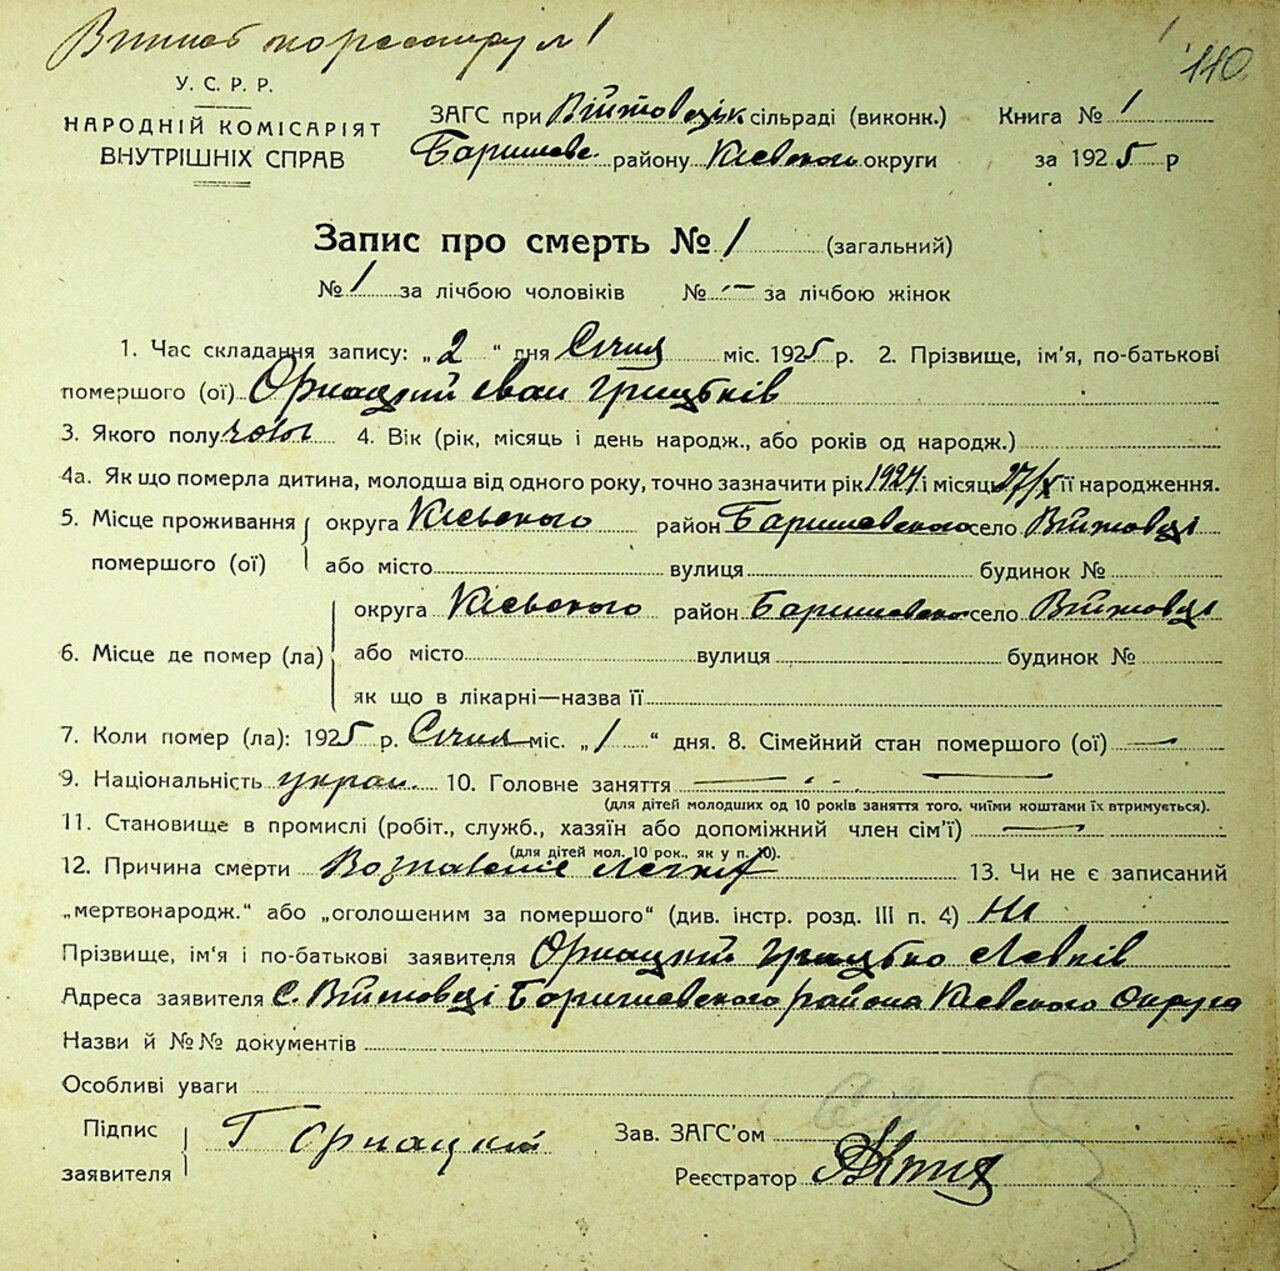 Виписъ по реєстру № 1
110
У. С. Р. Р.
НАРОДНІЙ КОМІСАРІЯТ
ВНУТРІШНІХ СПРАВ
ЗАГС при Війтовецік сільраді (виконк.)
Баришевс. району Київського округи
Книга № 1
за 1925 р
Запис про смерть № 1 (загальний)
№ 1 за лічбою чоловіків № — за лічбою жінок
1. Час складання запису: „2“ дня Січня міс. 1925 р. 2. Прізвище, ім'я, по-батькові
помершого (ої) Орнацкий Иван Грицьків
3. Якого полу чолов 4. Вік (рік, місяць і день народж., або років од народж.)
4а. Як що померла дитина, молодша від одного року, точно зазначити рік 1924 і місяць 27/X її народження.
5. Місце проживання помершого (ої) округа Київського район Баришевского село Війтовці
або місто вулиця будинок №
6. Місце де помер (ла) округа Київського район Баришевско село Війтовці
або місто вулиця будинок №
як що в лікарні—назва її
7. Коли помер (ла): 1925 р. Січня міс. „1“ дня. 8. Сімейний стан помершого (ої) —
9. Національність украи. 10. Головне заняття —
(для дітей молодших од 10 років заняття того, чиїми коштами їх втримується).
11. Становище в промислі (робіт., служб., хазяїн або допоміжний член сім'ї) —
(для дітей мол. 10 рок., як у п. 10).
12. Причина смерти легких 13. Чи не є записаний
„мертвонародж.“ або „оголошеним за помершого“ (див. інстр. розд. III п. 4) Ні
Прізвище, ім'я і по-батькові заявителя Орнацкий Грицько Левків
Адреса заявителя С. Війтовці Баришевского района Київского Округа
Назви й №№ документів
Особливі уваги
Підпис заявителя Г Орнацкий
Зав. ЗАГС'ом
Реєстратор